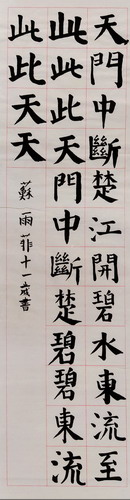 天門中斷楚江開碧水東流至
此此此天門中斷楚碧碧東流
此此天天
蘇雨菲十一歲書